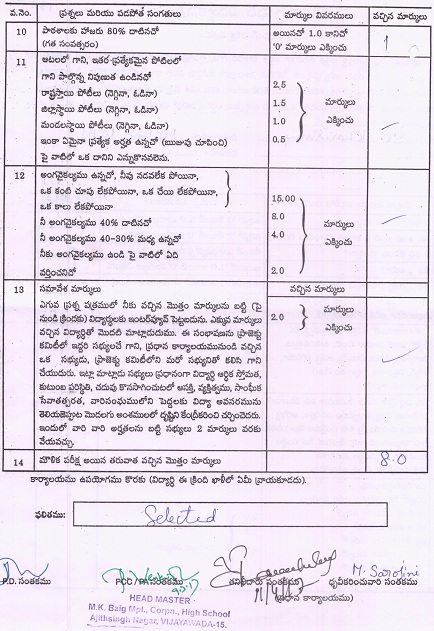 వ.నెం. ప్రశ్నలు మరియు వదపోత సంగతులు మార్కుల వివరములు వచ్చిన మార్కులు
10 పాఠశాలకు హాజరు 80% దాటినచో అయినచో 1.0 కానిచో 1
(గత సంవత్సరం) '0' మార్కులు ఎక్కించు
11 ఆటలలో గాని, ఇతర ప్రత్యేకమైన పోటీలలో
గాని పాల్గొన్న నిపుణత ఉండినచో
రాష్ట్రస్థాయి పోటీలు (నెగ్గినా, ఓడినా) 2.5
జిల్లాస్థాయి పోటీలు (నెగ్గినా, ఓడినా) 1.5 మార్కులు
మండలస్థాయి పోటీలు (నెగ్గినా, ఓడినా) 1.0 ఎక్కించు
ఇంకా ఏమైనా ప్రత్యేక అర్హత ఉన్నచో (ఋజువు చూపించి) 0.5
పై వాటిలో ఒక దానిని ఎన్నుకొనవలెను.
12 అంగవైకల్యము ఉన్నచో, నీవు నడవలేక పోయినా,
ఒక కంటి చూపు లేకపోయినా, ఒక చేయి లేకపోయినా, 15.00
ఒక కాలు లేకపోయినా
నీ అంగవైకల్యము 40% దాటినచో 8.0 మార్కులు
నీ అంగవైకల్యము 40-30% మధ్య ఉన్నచో 4.0 ఎక్కించు
నీకు అంగవైకల్యము ఉండి పై వాటిలో ఏది
వర్తించనిచో 2.0
13 సమావేశ మార్కులు వచ్చిన మార్కులు
ఎగువ ప్రశ్న పత్రములో నీకు వచ్చిన మొత్తం మార్కులను బట్టి (పై 2.0 మార్కులు
నుండి క్రిందకు) విద్యార్థులకు ఇంటర్వ్యూవ్ పెట్టబడును. ఎక్కువ మార్కులు ఎక్కించు
వచ్చిన విద్యార్థితో మొదటి మాట్లాడుదుము. ఈ సంభాషణను ప్రాజెక్టు
కమిటీలో ఇద్దరి సభ్యులచే గాని, ప్రధాన కార్యాలయమునుండి వచ్చిన
ఒక సభ్యుడు, ప్రాజెక్టు కమిటీలోని మరో సభ్యునితో కలిసి గాని
చేయుదురు. ఇట్లా మాట్లాడు సభ్యులు ప్రధానంగా విద్యార్థి ఆర్థిక స్తోమత,
కుటుంబ పరిస్థితి, చదువు కొనసాగించుటలో ఆసక్తి, వ్యక్తిత్వము, సాంఘీక
సేవాతత్పరత, వారిసంఘములోని పెద్దలకు విద్యా అవసరమును
తెలియజెప్పుట మొదలగు అంశములలో దృష్టిని కేంద్రీకరించి చర్చించెదరు.
ఇందులో వారి వారి అర్హతలను బట్టి సభ్యులు 2 మార్కులు వరకు
వేయవచ్చు.
14 మౌళిక పరీక్ష అయిన తరువాత వచ్చిన మొత్తం మార్కులు 8.0
కార్యాలయము ఉపయోగము కొరకు (విద్యార్థి ఈ క్రింది ఖాళీలో ఏమీ వ్రాయకూడదు).
ఫలితము: Selected
M. Sarojini
P.D. సంతకము PCC / PA సంతకము తనిఖీదారు సంతకము ధృవీకరించువారి సంతకము
(ప్రధాన కార్యాలయము)
HEAD MASTER
M.K. Baig Mpl., Corpn., High School
Ajithsingh Nagar, VIJAYAWADA-15.